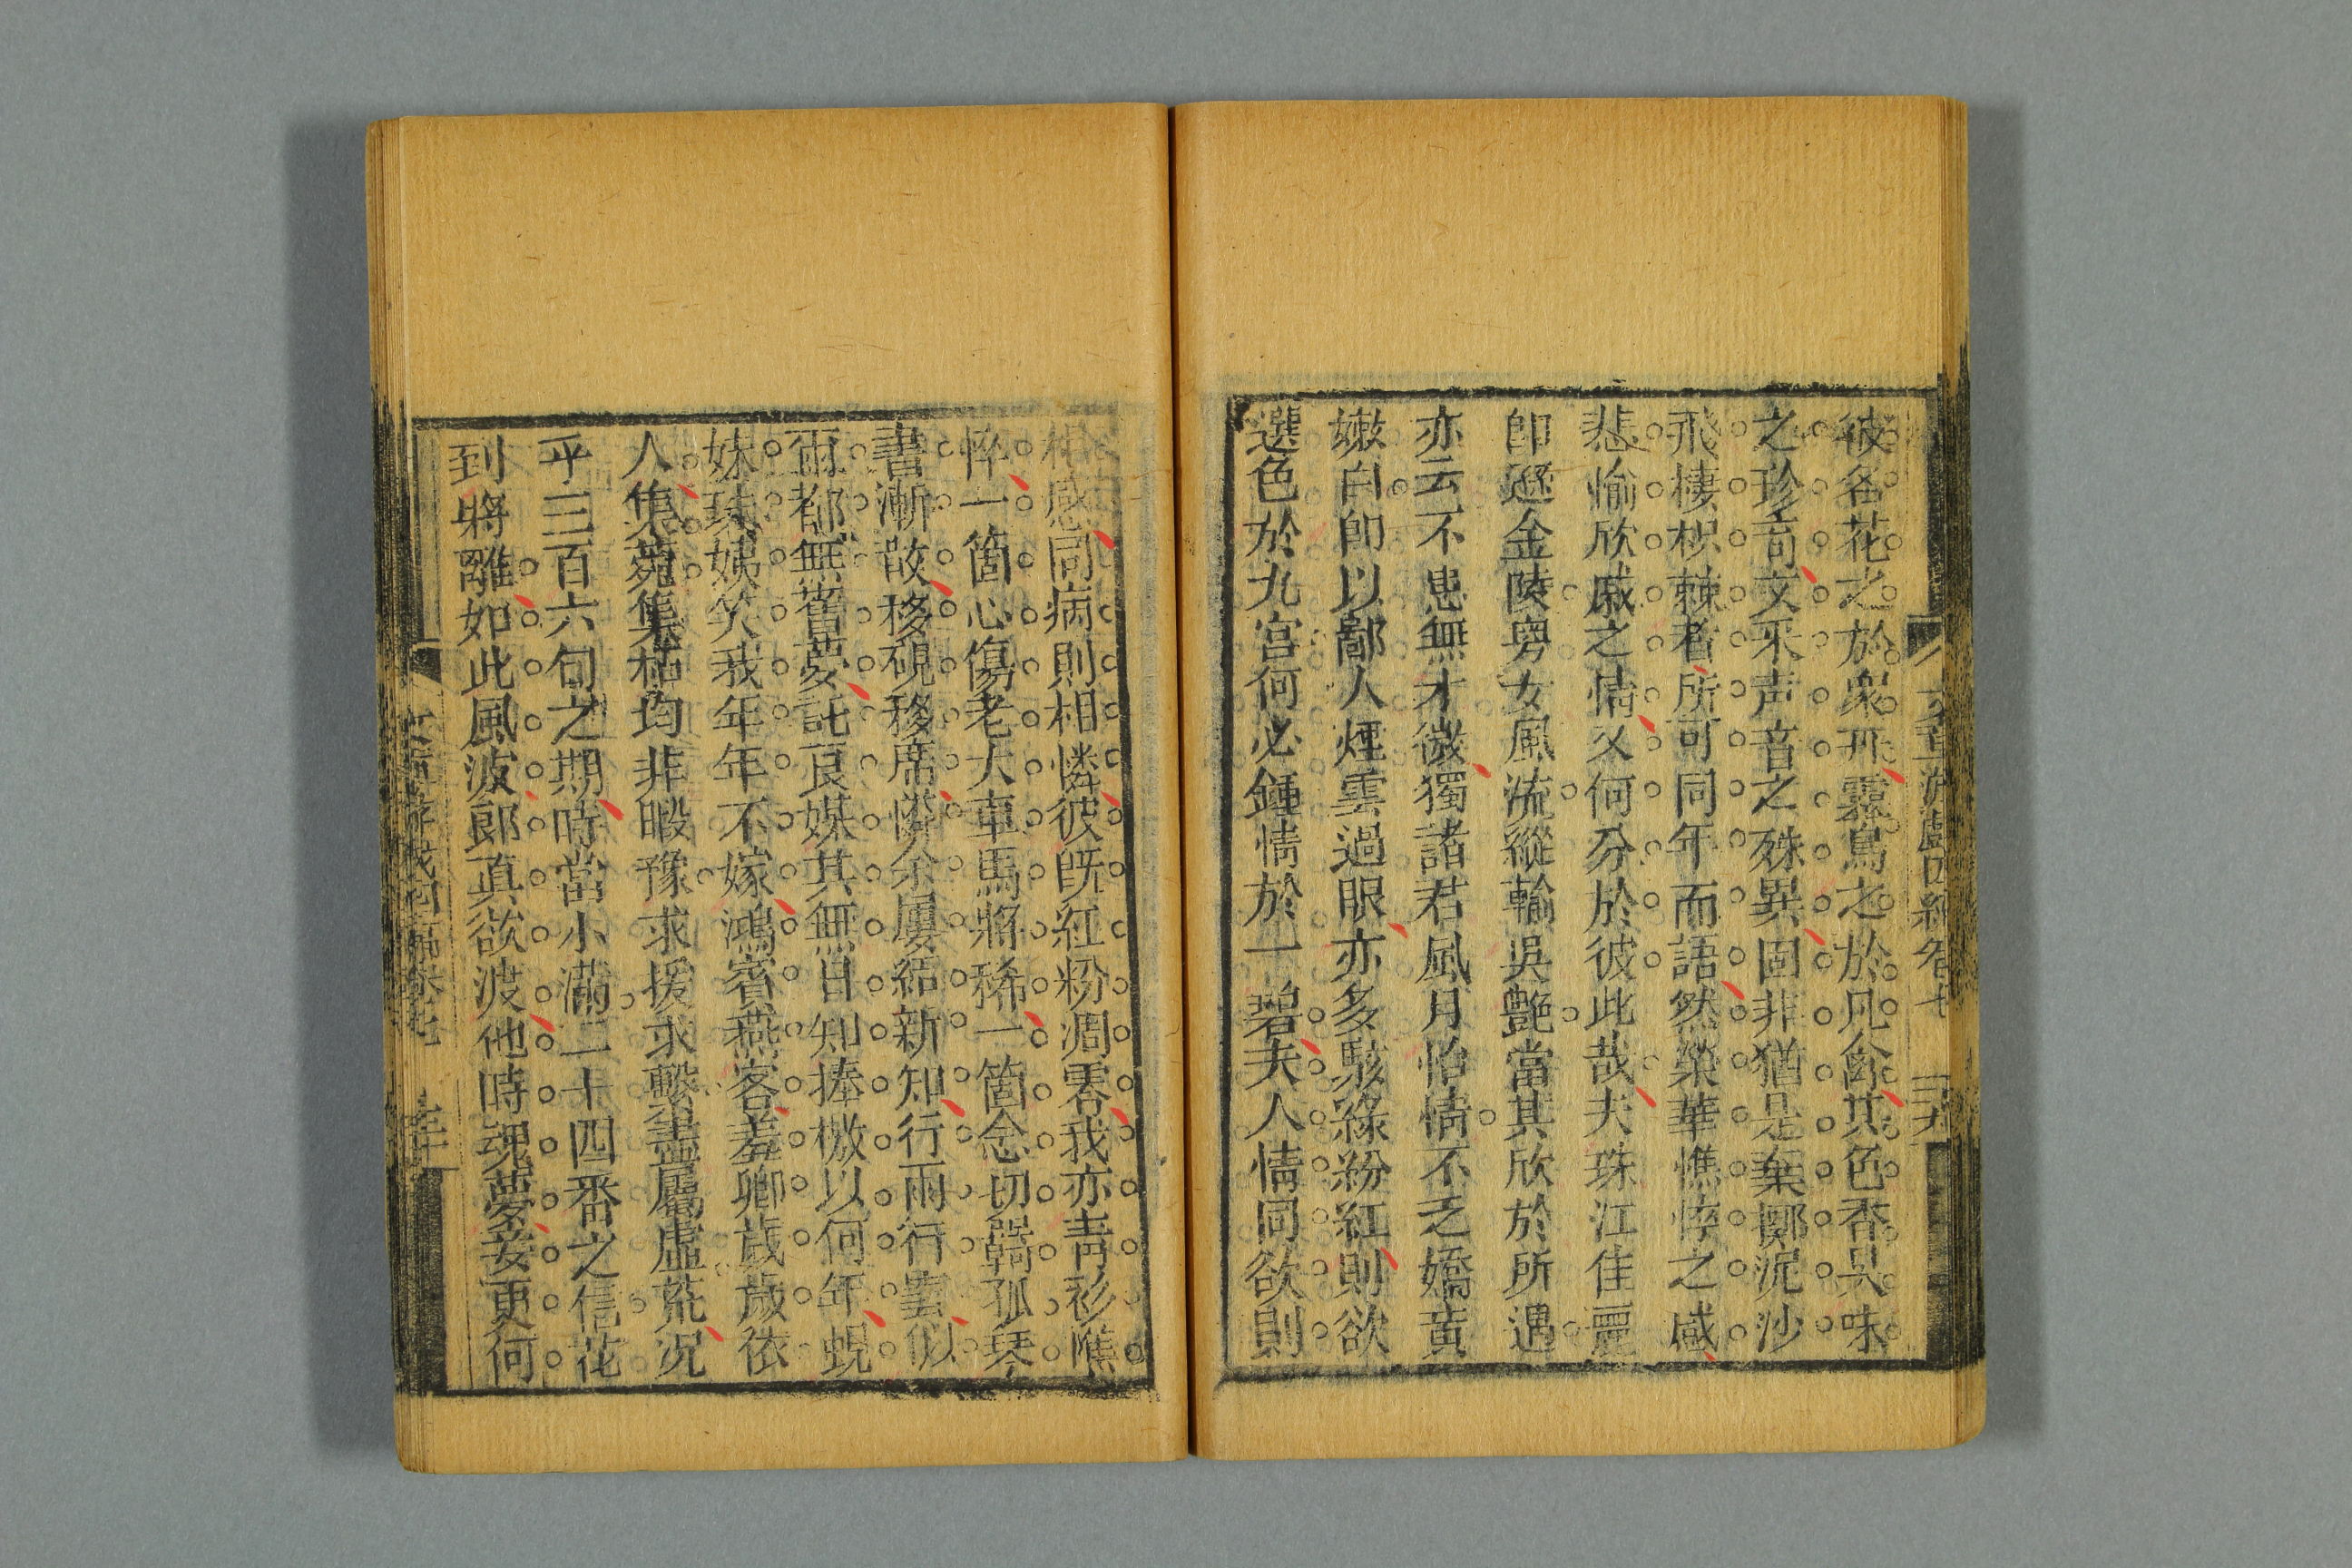 彼名花之於衆卉靈鳥之於凡禽其色香臭味
之珍奇文采声音之殊異固非猶是棄擲泥沙
飛棲枳棘者所可同年而語然榮華憔悴之感
悲愉欣戚之情又何分於彼此哉夫珠江佳麗
卽遜金陵粤女風流縱輸吳艶當其欣於所遇
亦云不患無才微獨諸君風月怡情不乏嬌黃
嫩白卽以鄙人煙雲過眼亦多駭綠紛紅則欲
選色於九宮何必鍾情於一碧夫人情同欲則
相感同病則相憐彼既紅粉凋零我亦靑衫憔
悴一箇心傷老大車馬將稀一箇念切羇孤琴
書漸散移硯移席憐余屢結新知行雨行雲似
爾都無舊夢託良媒其無日知捧檄以何年蜆
妹珠姨笑我年年不嫁鴻賓燕客羞卿歲歲依
人集菀集枯均非暇豫求援求繫盡屬虛荒况
乎三百六旬之期時當小滿二十四番之信花
到將離如此風波郎眞欲渡他時魂夢妾更何